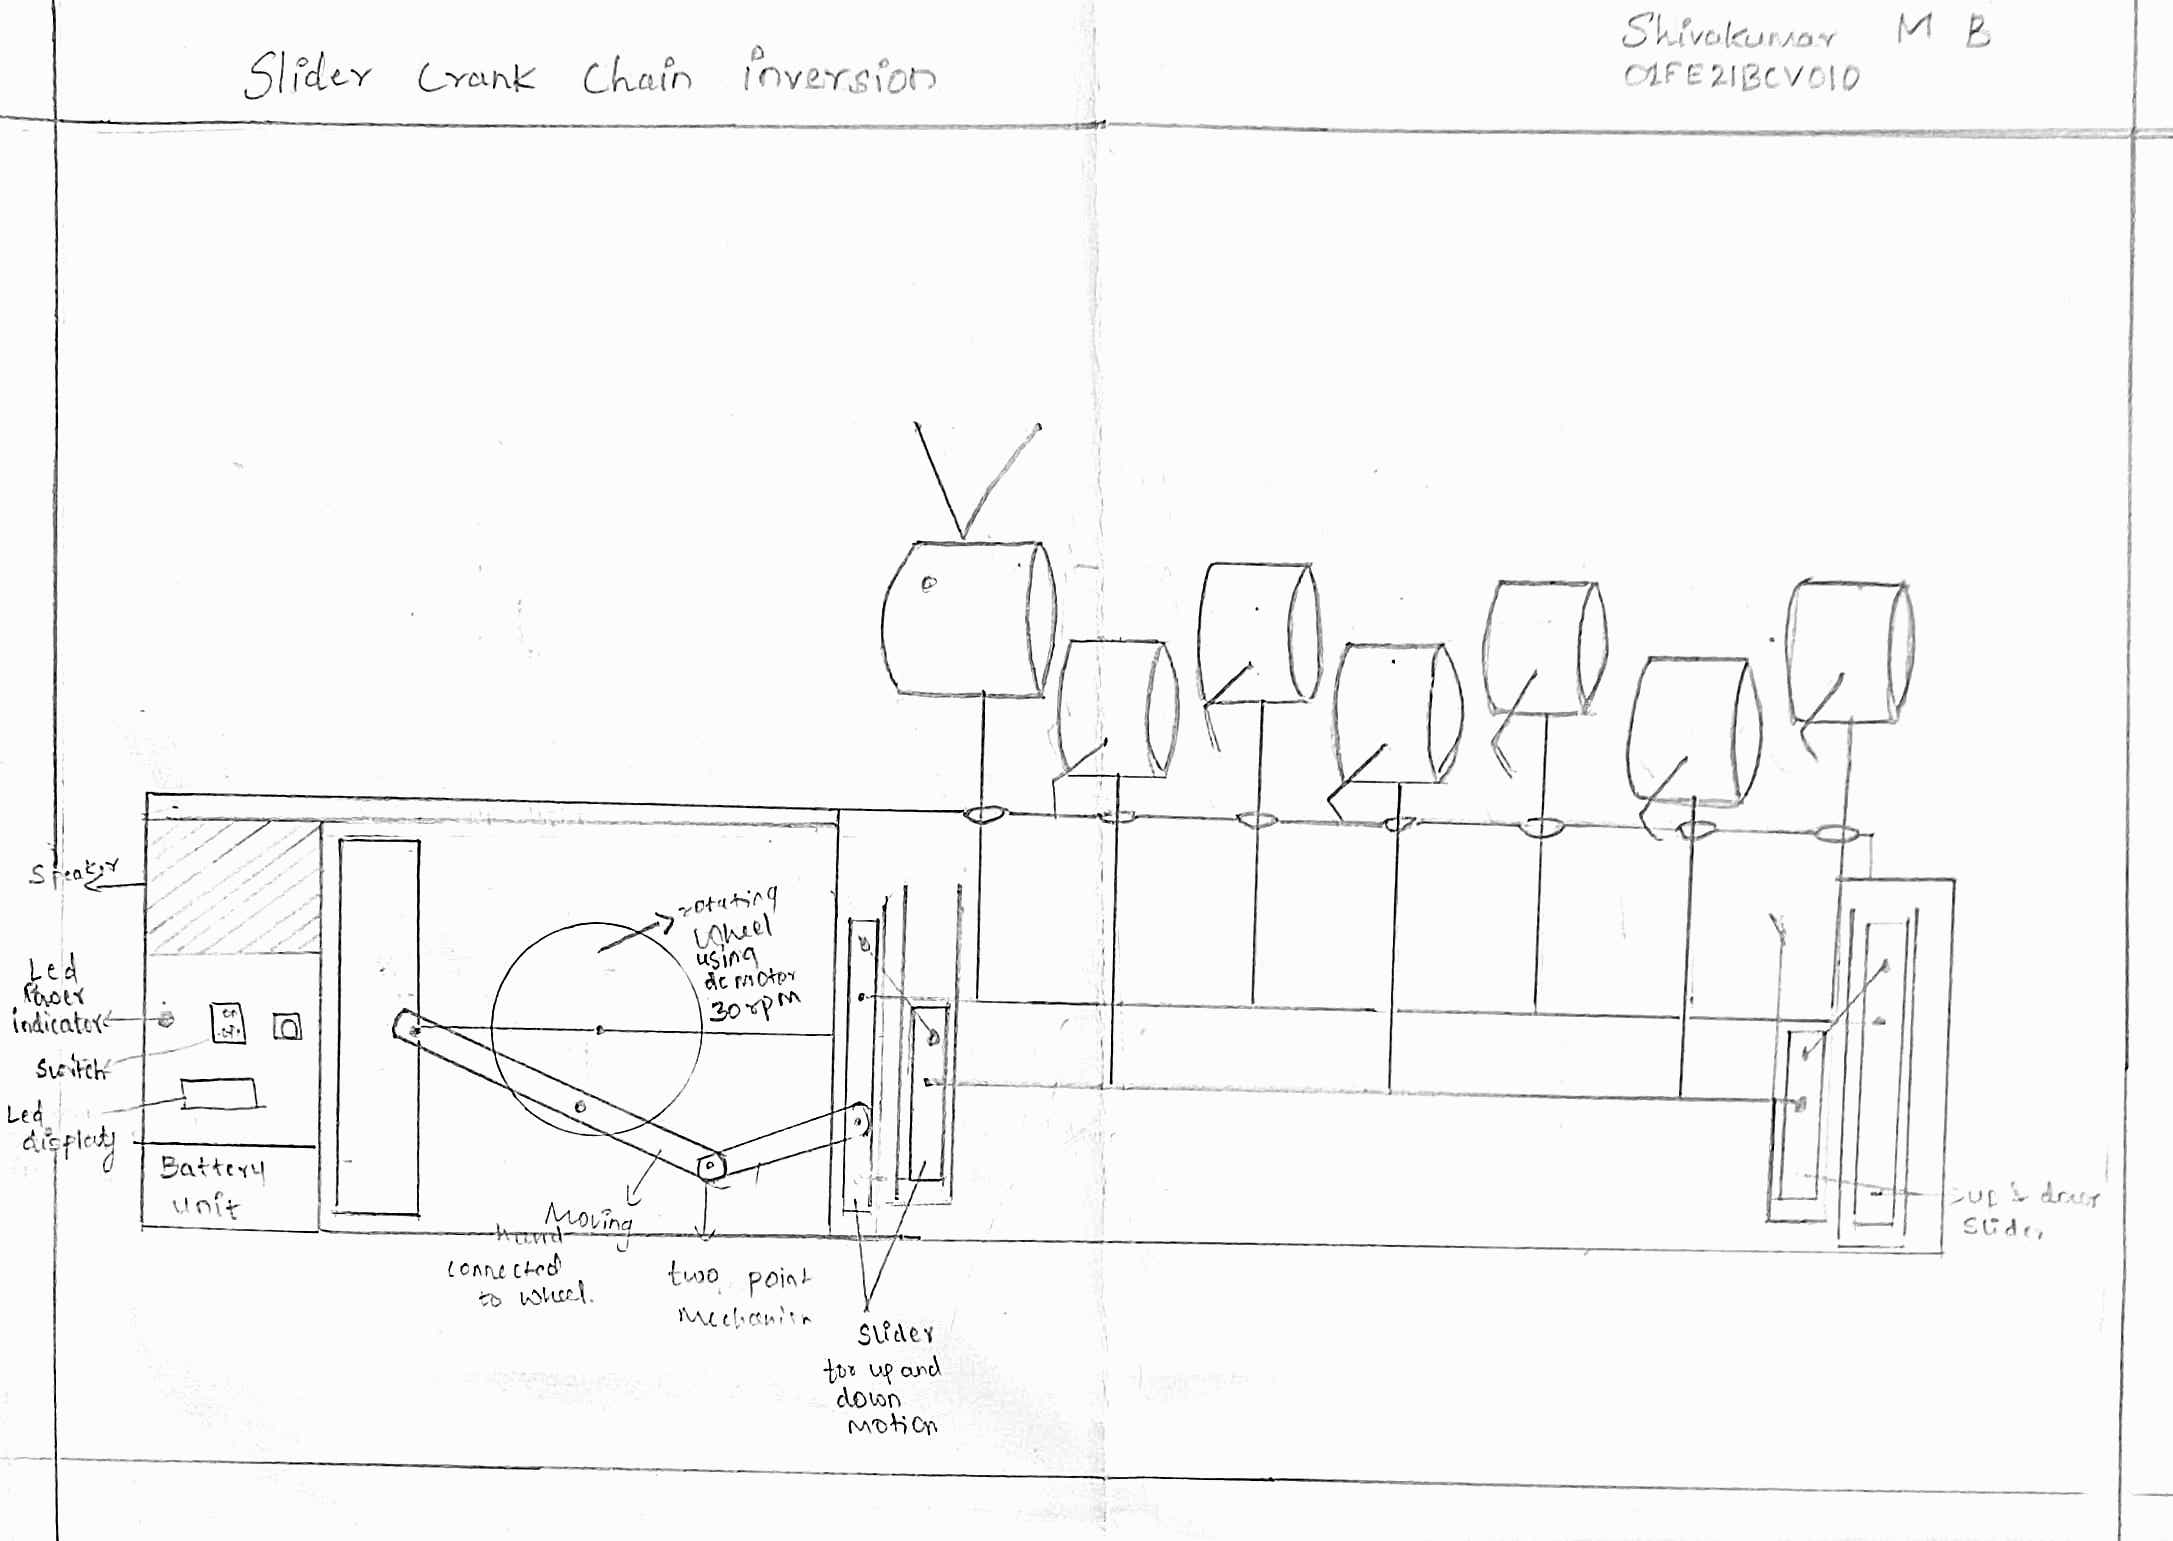 Slider Crank Chain inversion
Shivakumar M B
01FE21BCV010
Speaker
Led
Power
indicator
Switch
Led
display
Battery
unit
on
off
rotating
wheel
using
dc motor
30rpm
Moving
Hand
connected
to wheel.
two point
Mechanism
Slider
for up and
down
motion
up & down
Slider